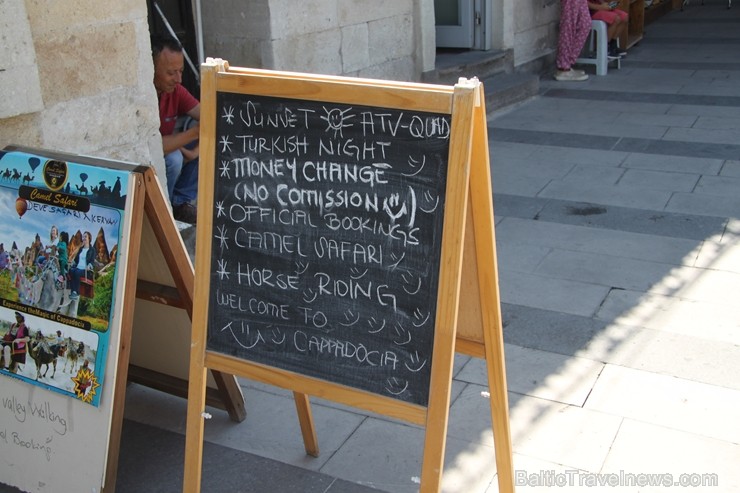 SUNSET ATV-QUAD
TURKISH NIGHT
MONEY CHANGE
(NO COMISSION)
OFFICIAL BOOKINGS
CAMEL SAFARI
HORSE RIDING
WELCOME TO
CAPPADOCIA
DEVE SAFARI
Experience the Magic of Cappadocia
Valley Walking
Booking
© BalticTravelnews.com